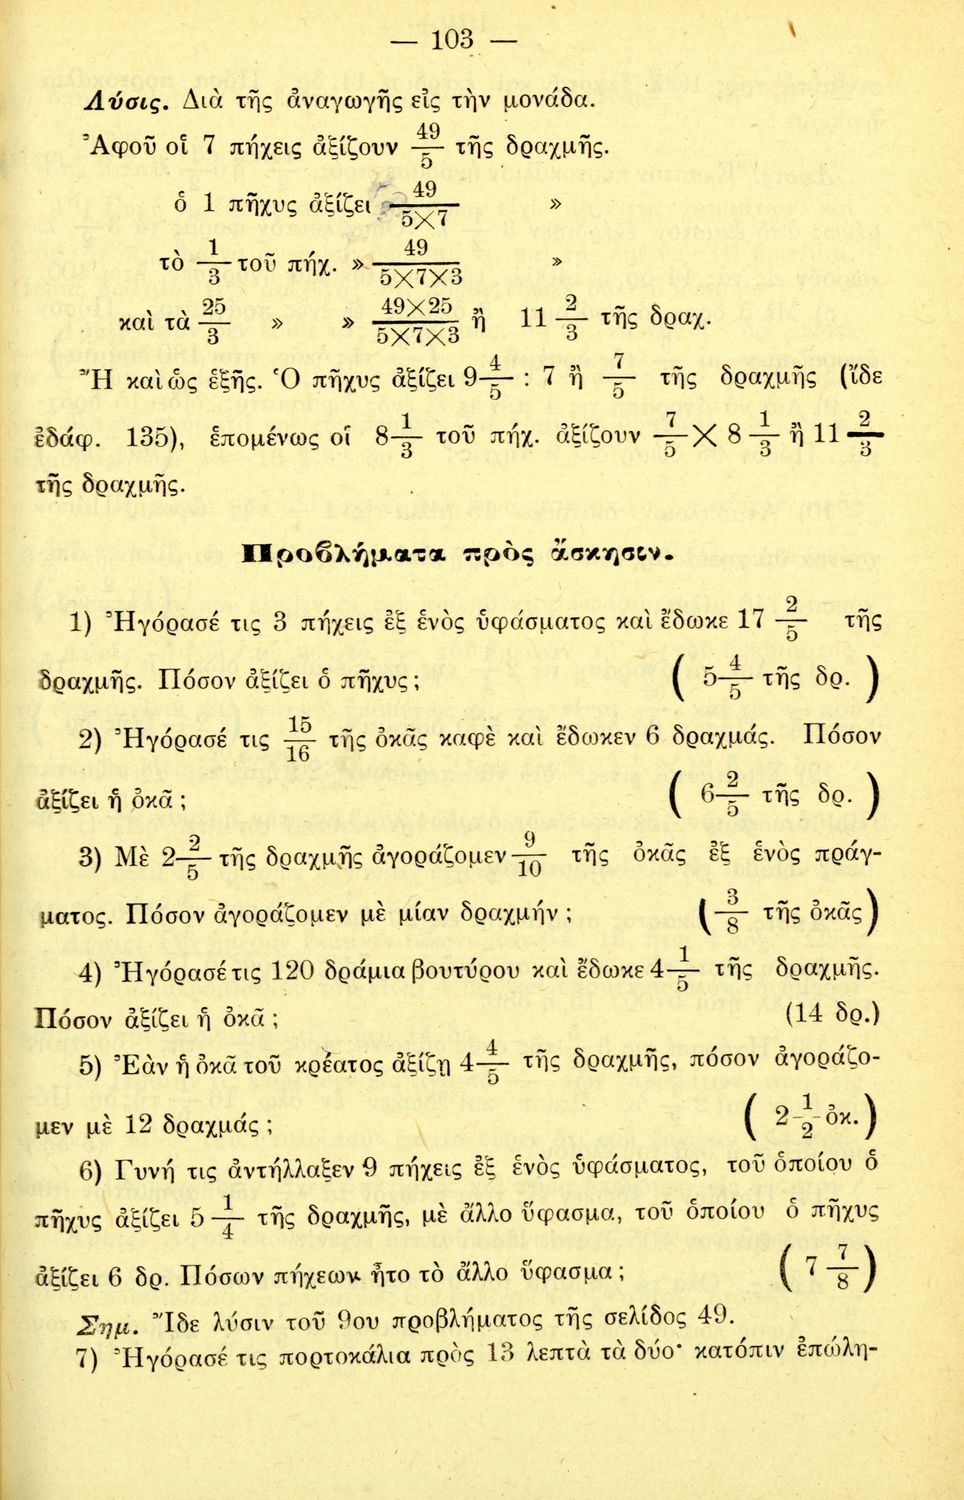 — 103 —
Λύσις. Διὰ τῆς ἀναγωγῆς εἰς τὴν μονάδα.
Ἀφοῦ οἱ 7 πήχεις ἀξίζουν 49/5 τῆς δραχμῆς.
ὁ 1 πῆχυς ἀξίζει 49/5×7 »
τὸ 1/3 τοῦ πήχ. » 49/5×7×3 »
καὶ τὰ 25/3 » » 49×25/5×7×3 ἢ 11 2/3 τῆς δραχ.
Ἢ καὶ ὡς ἑξῆς. Ὁ πῆχυς ἀξίζει 9 4/5 : 7 ἢ 7/5 τῆς δραχμῆς (ἴδε
ἐδάφ. 135), ἑπομένως οἱ 8 1/3 τοῦ πήχ. ἀξίζουν 7/5 × 8 1/3 ἢ 11 2/3
τῆς δραχμῆς.
Προβλήματα πρὸς ἄσκησιν.
1) Ἠγόρασέ τις 3 πήχεις ἐξ ἑνὸς ὑφάσματος καὶ ἔδωκε 17 2/5 τῆς
δραχμῆς. Πόσον ἀξίζει ὁ πῆχυς; ( 5 4/5 τῆς δρ. )
2) Ἠγόρασέ τις 15/16 τῆς ὀκᾶς καφὲ καὶ ἔδωκεν 6 δραχμάς. Πόσον
ἀξίζει ἡ ὀκᾶ; ( 6 2/5 τῆς δρ. )
3) Μὲ 2 2/5 τῆς δραχμῆς ἀγοράζομεν 9/10 τῆς ὀκᾶς ἐξ ἑνὸς πράγ-
ματος. Πόσον ἀγοράζομεν μὲ μίαν δραχμήν; ( 3/8 τῆς ὀκᾶς )
4) Ἠγόρασέ τις 120 δράμια βουτύρου καὶ ἔδωκε 4 1/5 τῆς δραχμῆς.
Πόσον ἀξίζει ἡ ὀκᾶ; (14 δρ.)
5) Ἐὰν ἡ ὀκᾶ τοῦ κρέατος ἀξίζῃ 4 4/5 τῆς δραχμῆς, πόσον ἀγοράζο-
μεν μὲ 12 δραχμάς; ( 2 1/2 ὀκ. )
6) Γυνή τις ἀντήλλαξεν 9 πήχεις ἐξ ἑνὸς ὑφάσματος, τοῦ ὁποίου ὁ
πῆχυς ἀξίζει 5 1/4 τῆς δραχμῆς, μὲ ἄλλο ὕφασμα, τοῦ ὁποίου ὁ πῆχυς
ἀξίζει 6 δρ. Πόσων πήχεων ἦτο τὸ ἄλλο ὕφασμα; ( 7 7/8 )
Σημ. Ἴδε λύσιν τοῦ 9ου προβλήματος τῆς σελίδος 49.
7) Ἠγόρασέ τις πορτοκάλια πρὸς 13 λεπτὰ τὰ δύο· κατόπιν ἐπώλη-